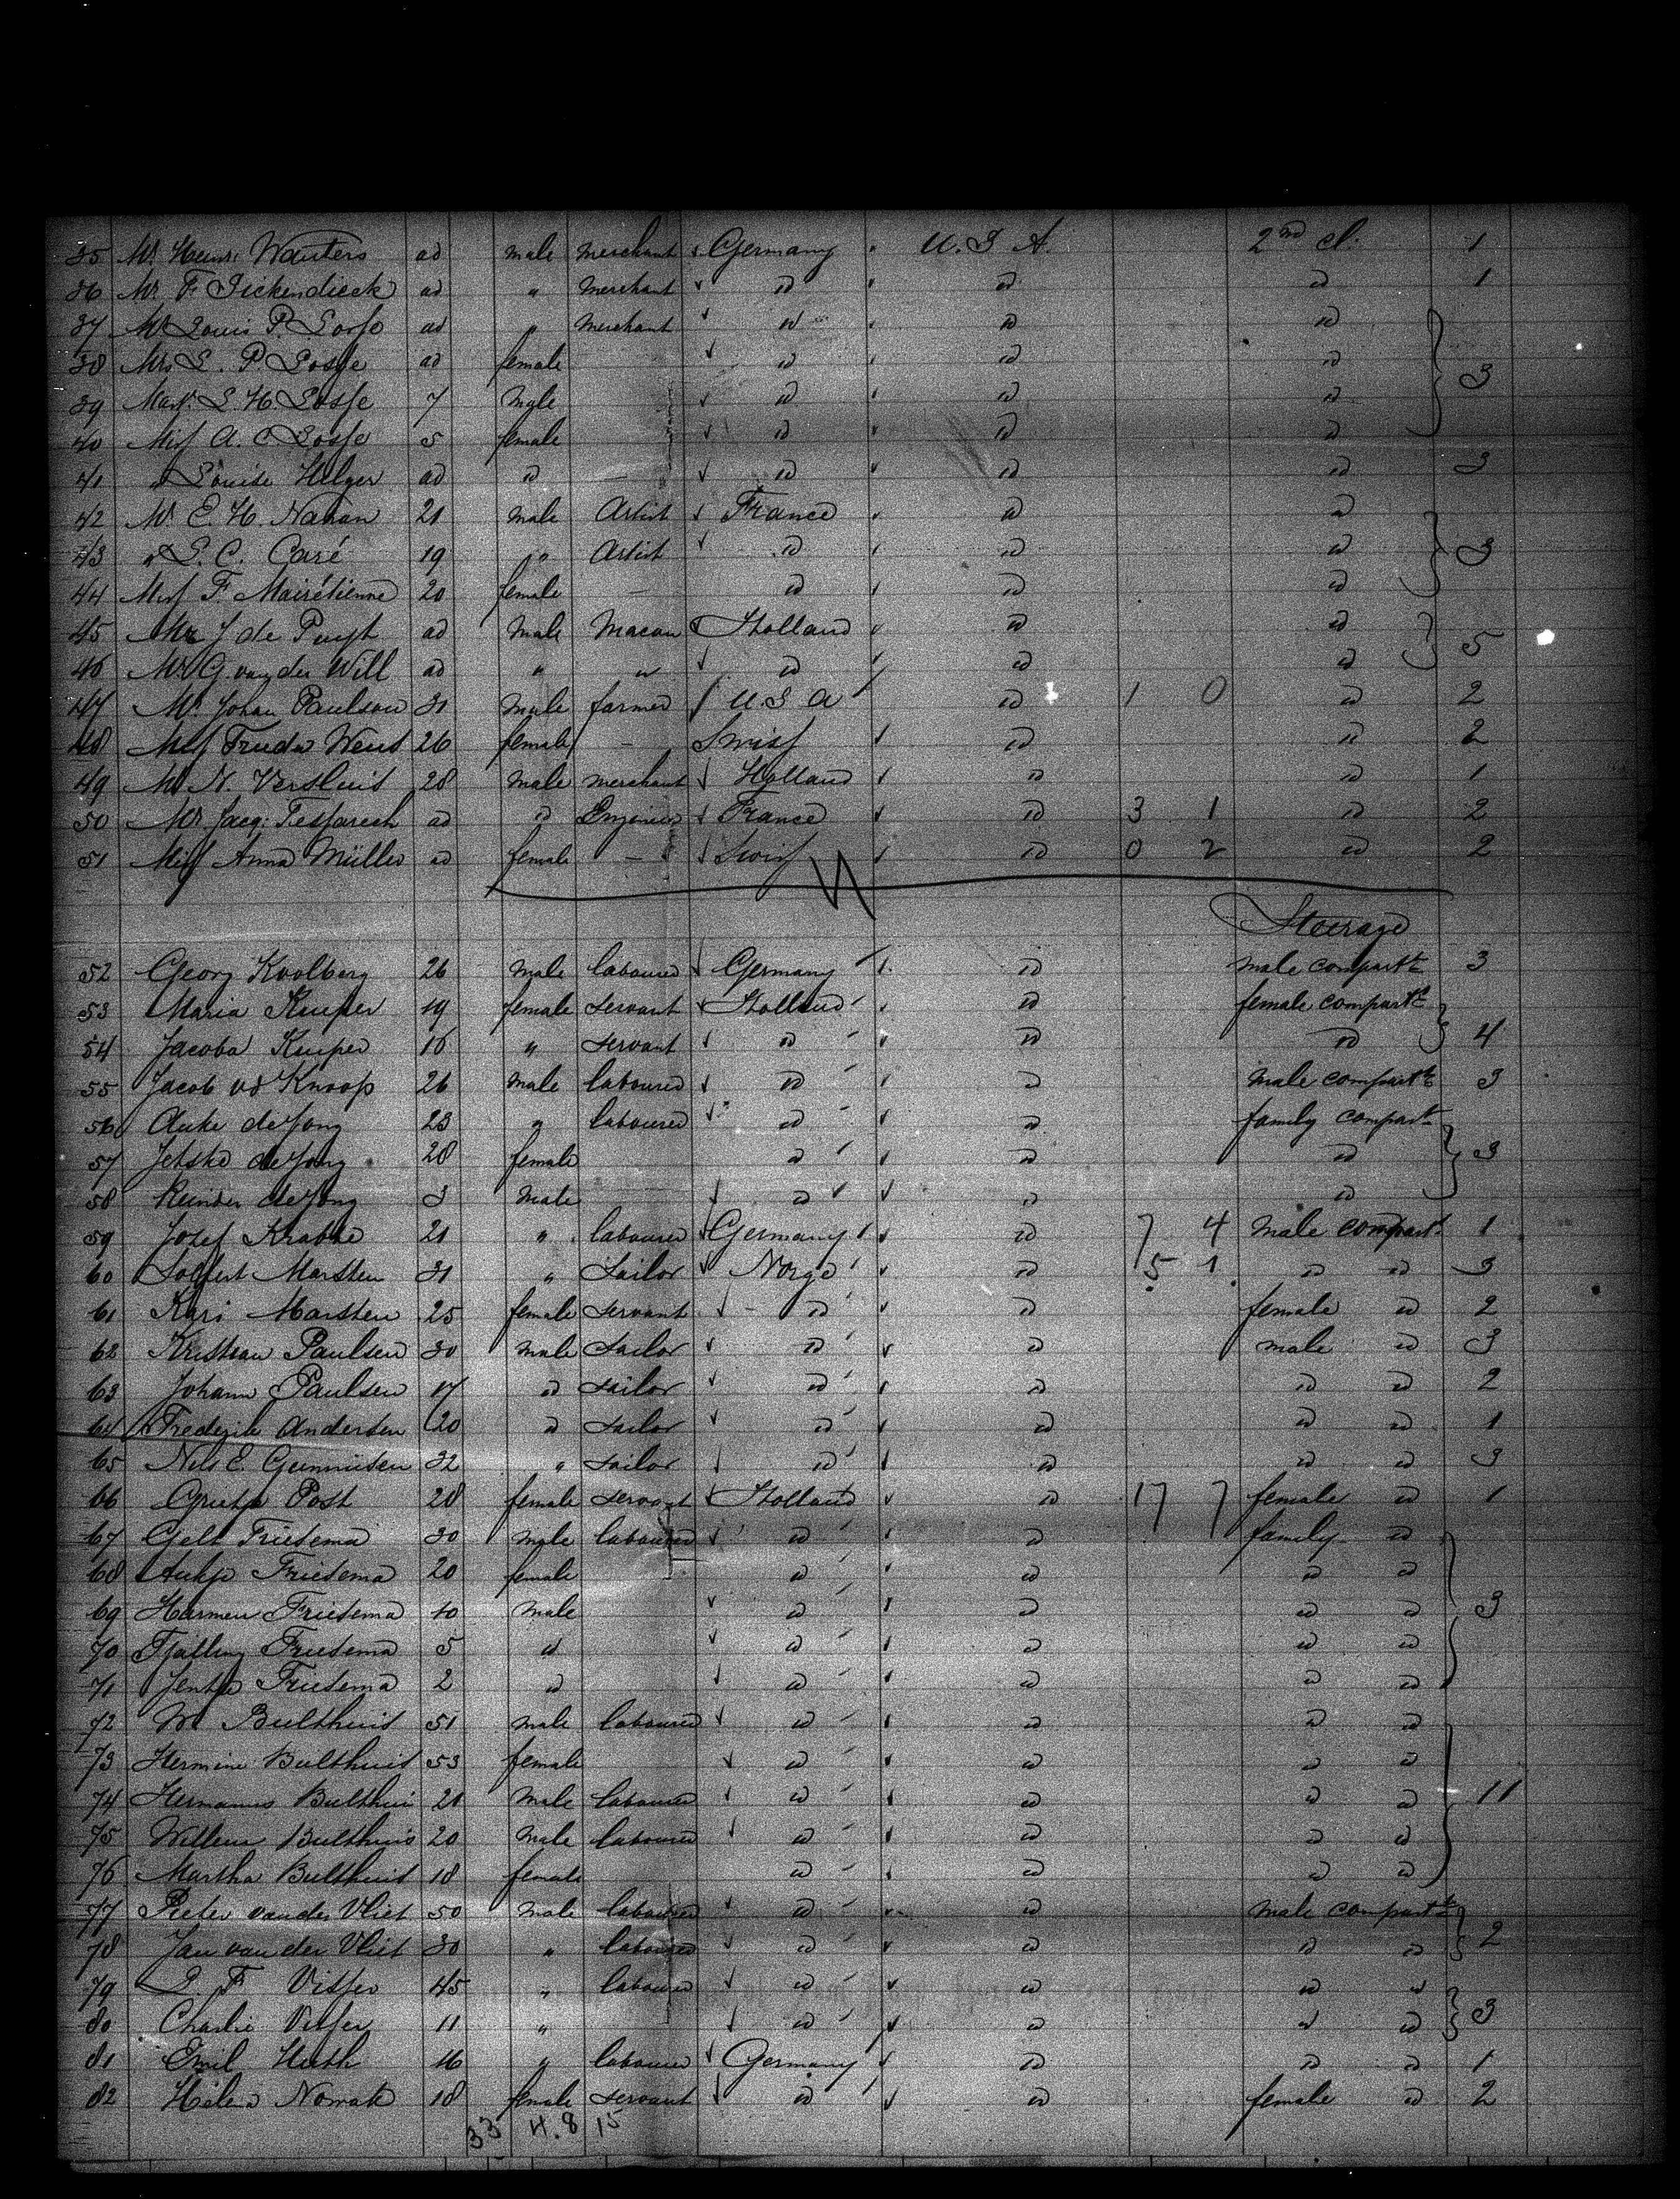 35 Mr Henri Wauters ad male merchant Germany U.S A. 2nd cl. 1
36 Mr F. Dickendieck ad " merchant id id id 1
37 Mr Louis P. ad " merchant id id id
38 Mrs L. P. ad female id id id 3
39 Mast. L. H. 7 male id id id
40 Miss A. C. 5 female id id id
41 " Louise Hilger ad id — id id id 3
42 Mr E. H. Nahan 21 male Artist France id id
43 " L. C. Caré 19 " Artist id id id 3
44 Miss F. Mairétienne 20 female — id id id
45 Mr J de Puyt ad male Macon Holland id id 5
46 Mr G. van der Will ad " " id id id
47 Mr Johan Paulson 31 male farmer U.S A id 1 0 id 2
48 Miss Frieda 26 female — Swiss id id 2
49 Mr N. Versluis 28 male merchant Holland id id 1
50 Mr Jacq: ad id Engineer France id 3 1 id 2
51 Miss Anna Müller ad female — Swiss id 0 2 id 2
Steerage
52 Georg Koolberg 26 male labourer Germany id male compartt 3
53 Maria Kuiper 19 female servant Holland id female compartt
54 Jacoba Kuiper 16 " servant id id id 4
55 Jacob vd Knoop 26 male labourer id id male compartt 3
56 Auke de Jong 23 " labourer id id family compart
57 Jetske de Jong 28 female id id id 3
58 Reinder de Jong 3 male id id id
59 Josef Krabbe 21 " labourer Germany id 7 4 male compart 1
60 Marsten 31 " Sailor Norge id 5 1 id id 3
61 Kari Marsten 25 female servant id id female id 2
62 Kristian Paulsen 30 male Sailor id id male id 3
63 Johann Paulsen 17 id sailor id id id id 2
64 Frederik Andersen 20 id sailor id id id id 1
65 Nels E. 32 " sailor id id id id 3
66 Grietje Post 28 female servant Holland id 17 7 female id 1
67 Gelt Friesema 30 male labourer id id family id
68 Aukje Friesema 20 female id id id id
69 Harmen Friesema 10 male id id id id 3
70 Tjalling Friesema 5 id id id id id
71 Jentje Friesema 2 id id id id id
72 W. Bulthuis 51 male labourer id id id id
73 Hermine Bulthuis 53 female id id id id
74 Hermanus Bulthuis 21 male labourer id id id id 11
75 Willem Bulthuis 20 male labourer id id id id
76 Martha Bulthuis 18 female id id id id
77 Pieter van der Vliet 50 male labourer id id male compartt
78 Jan van der Vliet 30 " labourer id id id id 2
79 F Visser 45 " labourer id id id id
80 Charlie Visser 11 " id id id id 3
81 Emil Huth 16 " labourer Germany id id id 1
82 Helena Nowak 18 female servant id id female id 2
33 4.8 15